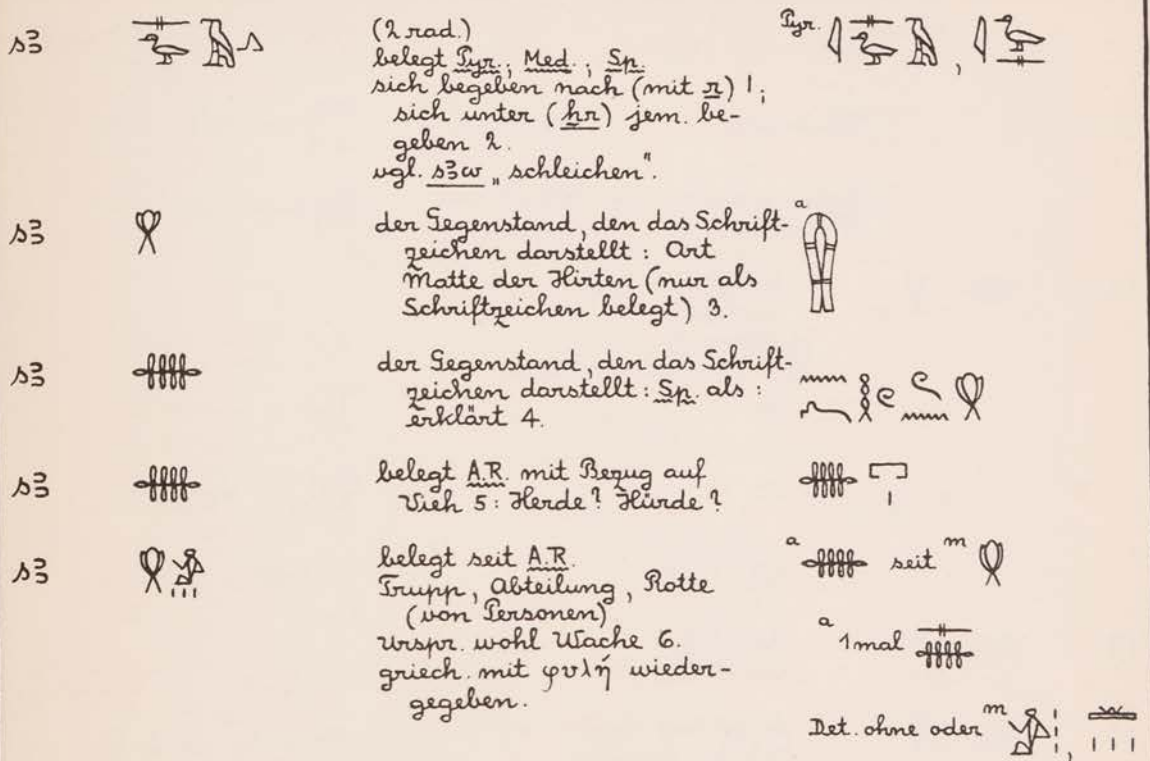 sꜣ (2 rad.) Pyr.
belegt Pyr.; Med.; Sp.
sich begeben nach (mit r) 1;
sich unter (ẖr) jem. be-
geben 2.
vgl. sꜣw „schleichen".
sꜣ der Gegenstand, den das Schrift- a
zeichen darstellt: Art
Matte der Hirten (nur als
Schriftzeichen belegt) 3.
sꜣ der Gegenstand, den das Schrift-
zeichen darstellt: Sp. als:
erklärt 4.
sꜣ belegt A.R. mit Bezug auf
Vieh 5: Herde? Hürde?
sꜣ belegt seit A.R. a seit m
Trupp, Abteilung, Rotte
(von Personen) a 1mal
Urspr. wohl Wache 6.
griech. mit φυλή wieder-
gegeben.
Det. ohne oder m